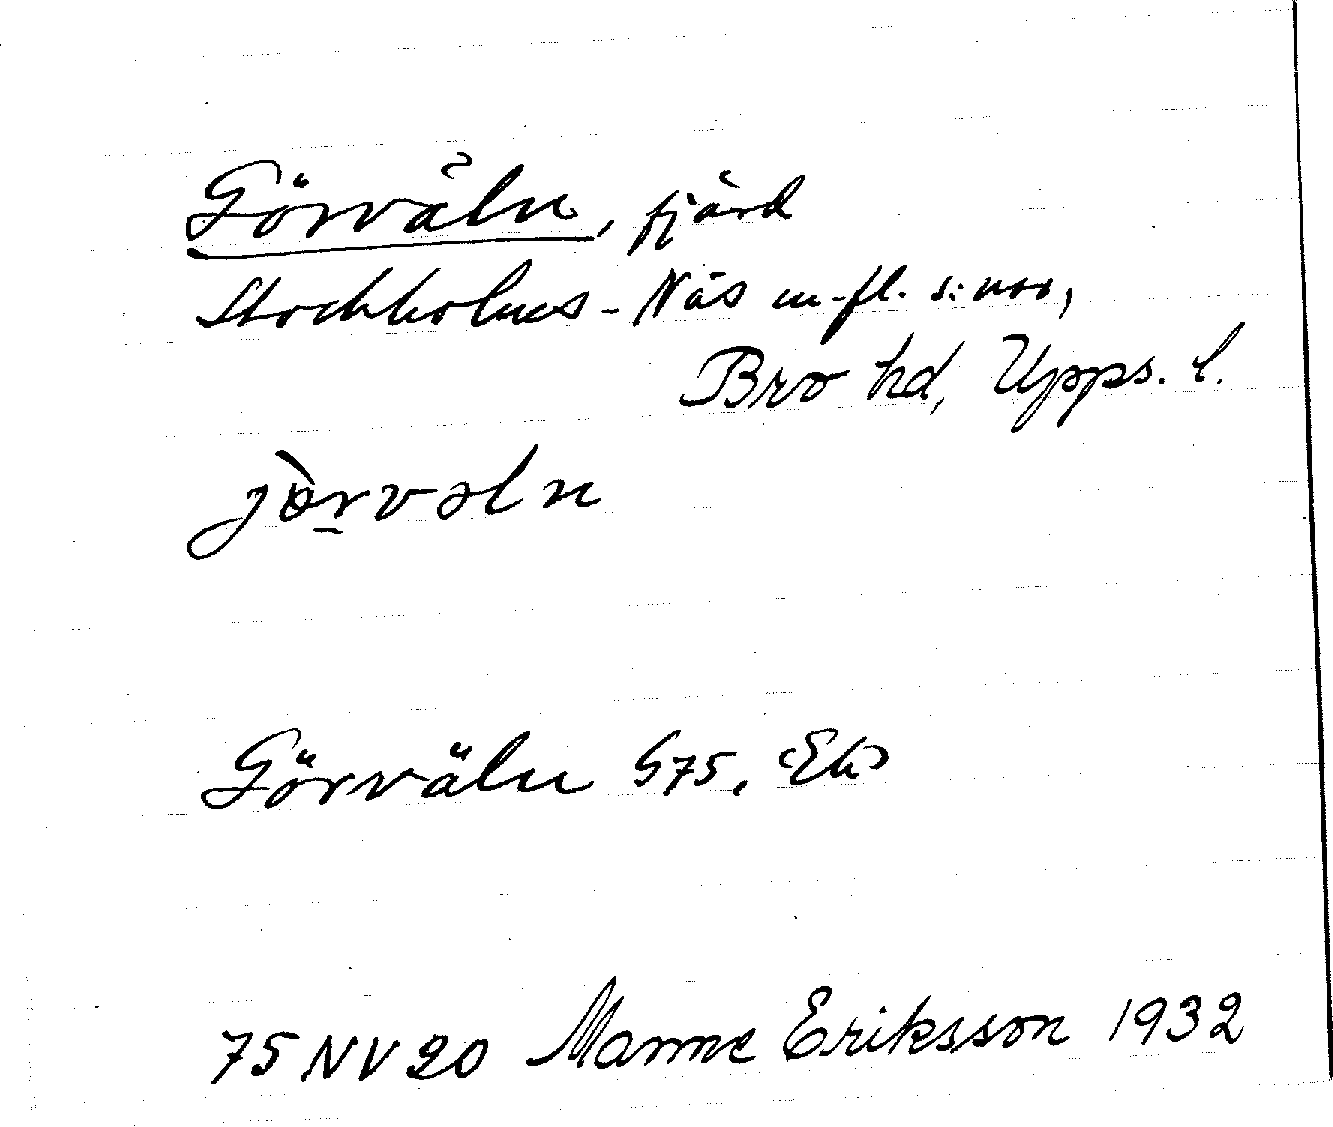 Görväln, fjärd
Stockholms-Näs m. fl. s:nar,
Bro hd, Upps. l.
jò̱rvəln
Görväln G75, Ek
75 NV 20 Manne Eriksson 1932